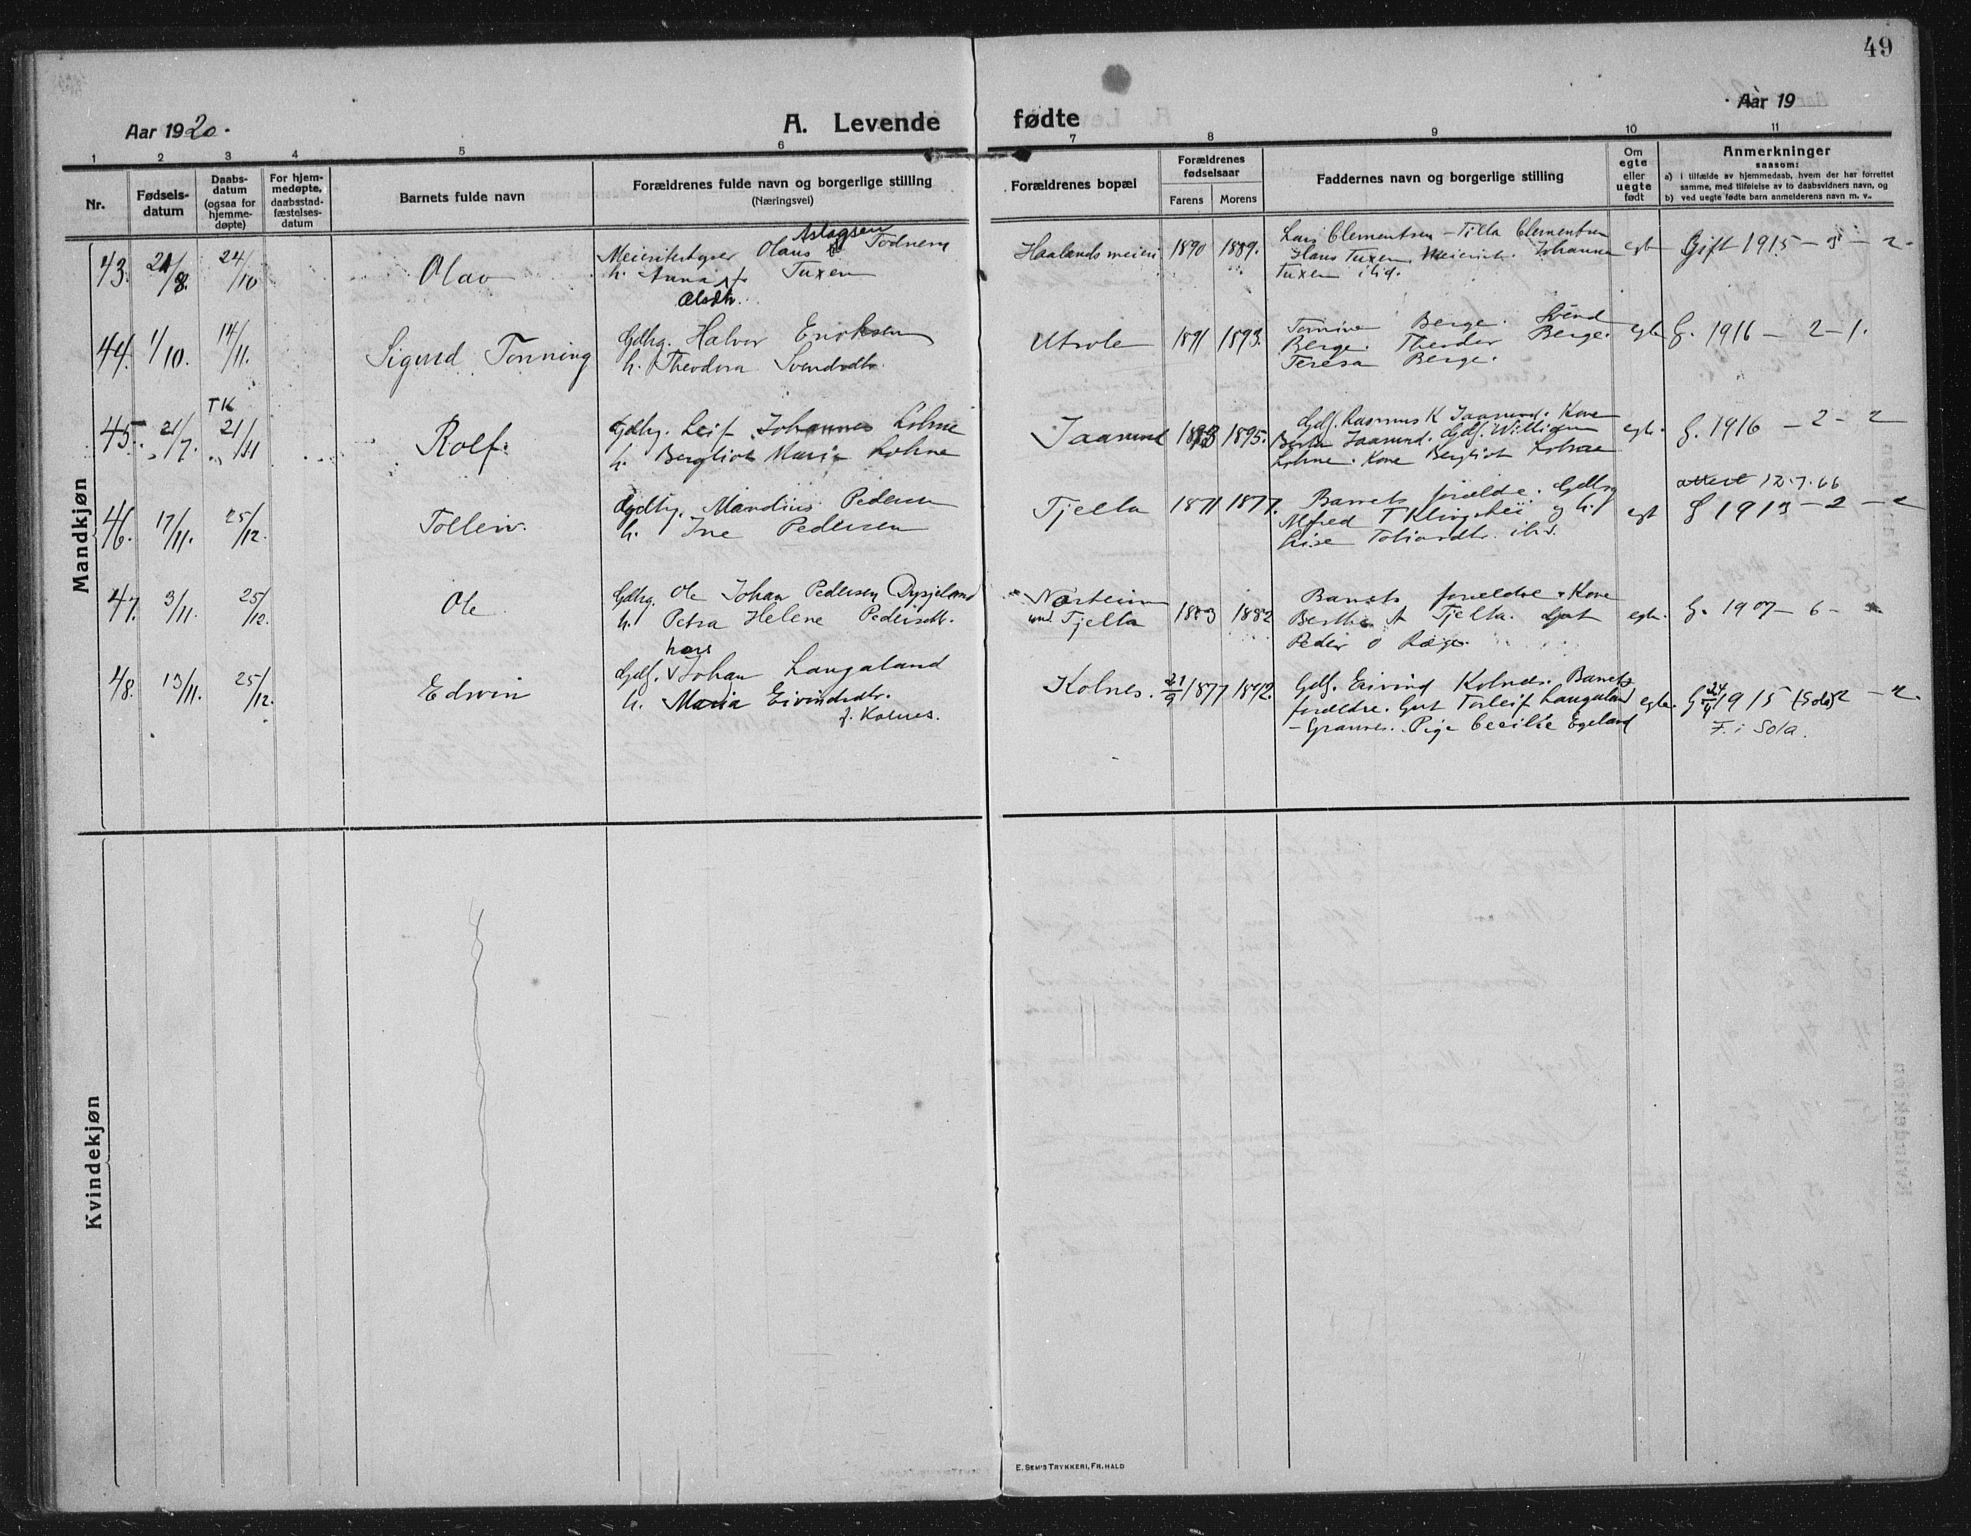 49
Aar 1920.
A. Levende fødte
Aar 19
1 2 3 4 5 6 7 8 9 10 11
Nr.
Fødsels-
datum
Daabs-
datum
(ogsaa for
hjemme-
døpte)
For hjem-
medøpte,
daabsstad-
fæstelses-
datum
Barnets fulde navn
Forældrenes fulde navn og borgerlige stilling
(Næringsvei)
Forældrenes bopæl
Forældrenes
fødselsaar
Farens Morens
Faddernes navn og borgerlige stilling
Om
egte
eller
uegte
født
Anmerkninger
saasom:
a) i tilfælde av hjemmedaab, hvem der har forrettet
samme, med tilføielse av to daabsvidners navn, og
b) ved uegte fødte barn anmelderens navn m. v.
Mandkjøn
43. 21/8. 24/10 Olav
Aslagsen
Meieribestyrer Olaus Todnem
h. Anna Tuxen
Olsdtr.
Haalands meieri 1890 1889.
Lars Clementsen - Tilla Clementsen
Hans Tuxen Johanna
Tuxen ibid.
egt Gift 1915 - - 2.
44. 1/10. 14/11. Sigurd Tonning
Gdbg. Halvor Eriksen
h. Theodora Svendsdtr.
Utsola 1891 1893.
Tomine Berge. Svend
Berge. Theodor Berge.
Teresa Berge.
egte G. 1916 - 2 - 1.
TK
45. 21/7. 21/11 Rolf.
Gdbg. Leif Johannes Lohne
h. Bergliot Marie Lohne
Jaasund 1893 1895.
Gdf. Rasmus K Jaasund. Kone
Berta Jaasund. Gdf. William
Lohne. Kone Bergliot Lohne
egte. G. 1916 - 2 - 2
attest 12.7.66
46. 17/11. 25/12. Tolleiv.
Gdbg. Mandius Pedersen
h. Ine Pedersen
Tjelta 1871 1877.
Barnets forældre. Gdbg
Alfred T Klingshei og h.
Lise Tobiasdtr. ibid.
egt G 1913 - 2 - 2
47. 3/11. 25/12. Ole
Gdbg. Ole Johan Pedersen Dysjeland
h. Petra Helene Pedersdtr.
Norheim
und. Tjelta 1883 1882
Barnets forældre. Kone
Berthe A Tjelta. Gut
Peder O Ræge.
egte. G. 1907 - 6 -
48. 13/11. 25/12. Edwin
Lars
Gdf. Johan Langaland
h. Maria Eivindsdtr.
f. Kolnes.
Kolnes. 21/9 1877 1872.
Gdf. Eivind Kolnes. Barnets
forældre. Gut Torleif Langaland
- Grannes. Pige Cecilie Egeland
egte. G 24/4 1915 (Sola) 2 - 2.
F. i Sola.
Kvindekjøn
E. SEM'S TRYKKERI, FR.HALD